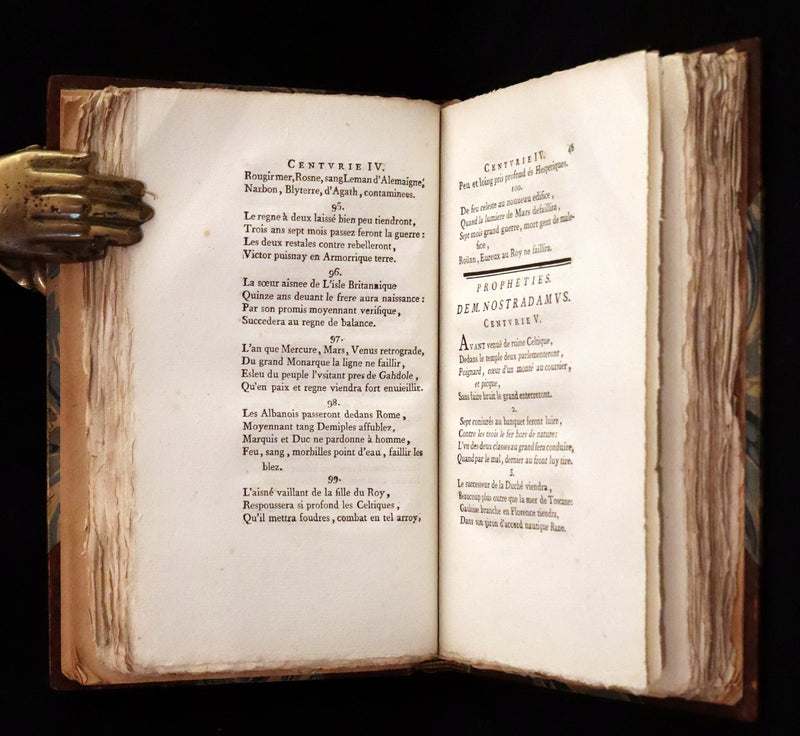 CENTVRIE IV.
Rougir mer, Rosne, sang Leman d'Alemaigne,
Narbon, Blyterre, d'Agath, contaminees.
95.
Le regne à deux laissé bien peu tiendront,
Trois ans sept mois passez feront la guerre :
Les deux restales contre rebelleront,
Victor puisnay en Armorrique terre.
96.
La sœur aisnee de L'isle Britannique
Quinze ans deuant le frere aura naissance :
Par son promis moyennant verifique,
Succedera au regne de balance.
97.
L'an que Mercure, Mars, Venus retrograde,
Du grand Monarque la ligne ne faillir,
Esleu du peuple l'vsitant pres de Gahdole,
Qu'en paix et regne viendra fort enuieillir.
98.
Les Albanois passeront dedans Rome,
Moyennant tang Demiples affublez,
Marquis et Duc ne pardonne à homme,
Feu, sang, morbilles point d'eau, faillir les
blez.
99.
L'aisné vaillant de la fille du Roy,
Respoussera si profond les Celtiques,
Qu'il mettra foudres, combat en tel arroy,
CENTVRIE IV.
Peu et loing pris profond és Hesperiques.
100.
De feu celeste au nouueau edifice,
Quand la lumiere de Mars defaillira,
Sept mois grand guerre, mort gent de male-
fice,
Roüan, Eureux au Roy ne faillira.
PROPHETIES.
DE M. NOSTRADAMVS.
CENTVRIE V.
AVANT venuë de ruine Celtique,
Dedans le temple deux parlementeront,
Poignard, cœur d'un monté au coursier,
et picque,
Sans faire bruit le grand enterreront.
2.
Sept coniurés au banquet feront luire,
Contre les trois le fer hors de nature:
L'vn des deux classes au grand fera conduire,
Quand par le mal, dernier au front luy tire.
3.
Le successeur de la Duché viendra,
Beaucoup plus outre que la mer de Toscane:
Gauloise branche en Florence tiendra,
Dans son giron d'accord nautique Rane.